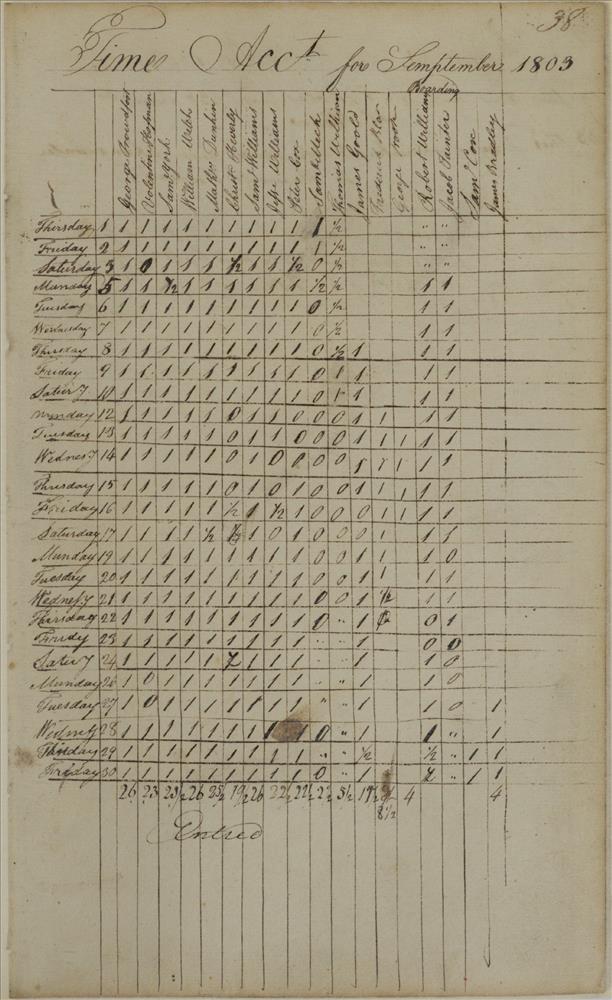 38
Time Acct for Semptember 1803
Boarding
George Proudfoot
Valentin Hoffman
Saml York
William Webb
Mathw Dunkin
Christr Heverly
Saml Williams
Jesse Williams
Peter Cox
Saml Meck
Thomas Wilkison
James Goold
Frederick
George
Robert Williams
Jacob Painter
Saml Cox
James Bradley
Thursday 1 1 1 1 1 1 1 1 1 1 1 ½ " "
Friday 2 1 1 1 1 1 1 1 1 1 1 ½ " "
Saturday 3 1 0 1 1 1 ½ 1 1 ½ 0 ½ " "
Munday 5 1 1 ½ 1 1 1 1 1 1 ½ ½ 1 1
Tuesday 6 1 1 1 1 1 1 1 1 1 0 ½ 1 1
Wednesday 7 1 1 1 1 1 1 1 1 1 0 ½ 1 1
Thursday 8 1 1 1 1 1 1 1 1 1 0 ½ 1 1 1
Friday 9 1 1 1 1 1 1 1 1 1 0 1 1 1 1
Satury 10 1 1 1 1 1 1 1 1 1 0 1 1 1 1
Munday 12 1 1 1 1 1 0 1 1 0 0 0 1 1 1 1
Tuesday 13 1 1 1 1 1 0 1 1 0 0 0 1 1 1 1 1
Wednesy 14 1 1 1 1 1 0 1 0 0 0 0 1 1 1 1 1
Thursday 15 1 1 1 1 1 0 1 0 1 0 0 1 1 1 1 1
Friday 16 1 1 1 1 1 ½ 1 ½ 1 0 0 0 1 1 1 1
Saturday 17 1 1 1 1 ½ ½ 1 0 1 0 0 0 1 1 1
Munday 19 1 1 1 1 1 1 1 1 1 0 0 1 1 1 0
Tuesday 20 1 1 1 1 1 1 1 1 1 0 0 1 1 1 1
Wednesy 21 1 1 1 1 1 1 1 1 1 0 0 1 ½ 1 1
Thursday 22 1 1 1 1 1 1 1 1 1 0 " 1 0 1
Friday 23 1 1 1 1 1 1 1 1 1 " " 1 0 0
Satury 24 1 1 1 1 1 1 1 1 " " 1 1 0
Munday 26 1 0 1 1 1 1 1 1 1 " " 1 1 0
Tuesday 27 1 0 1 1 1 1 1 1 1 " " 1 1 0 1
Wednesy 28 1 1 1 1 1 1 1 1 1 0 " 1 1 " 1
Thirsday 29 1 1 1 1 1 1 1 1 1 " " ½ ½ " 1 1
Friday 30 1 1 1 1 1 1 1 1 1 0 " 1 " 1 1
26 23 25½ 26 25½ 19½ 26 22½ 22½ 2½ 5½ 17½ 4 4
8½
Entred